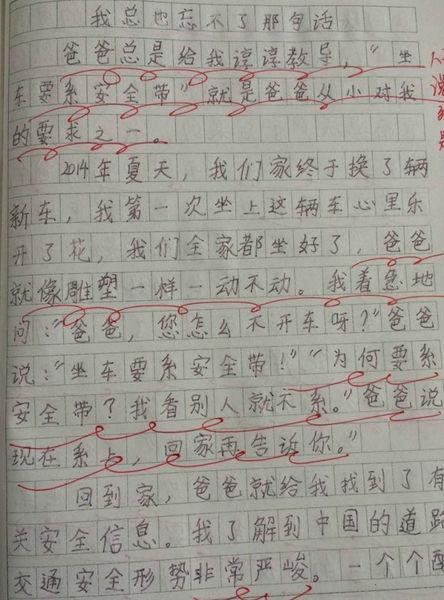 我总也忘不了那句话
爸爸总是给我谆谆教导，“坐
车要系安全带”就是爸爸从小对我
的要求之一。
2014年夏天，我们家终于换了辆
新车，我第一次坐上这辆车心里乐
开了花，我们全家都坐好了，爸爸
就像雕塑一样一动不动。我着急地
问：“爸爸，您怎么不开车呀？”爸爸
说：“坐车要系安全带！”“为何要系
安全带？我看别人就不系。”爸爸说
现在系上，回家再告诉你。”
回到家，爸爸就给我找到了有
关安全信息。我了解到中国的道路
交通安全形势非常严峻。一个个